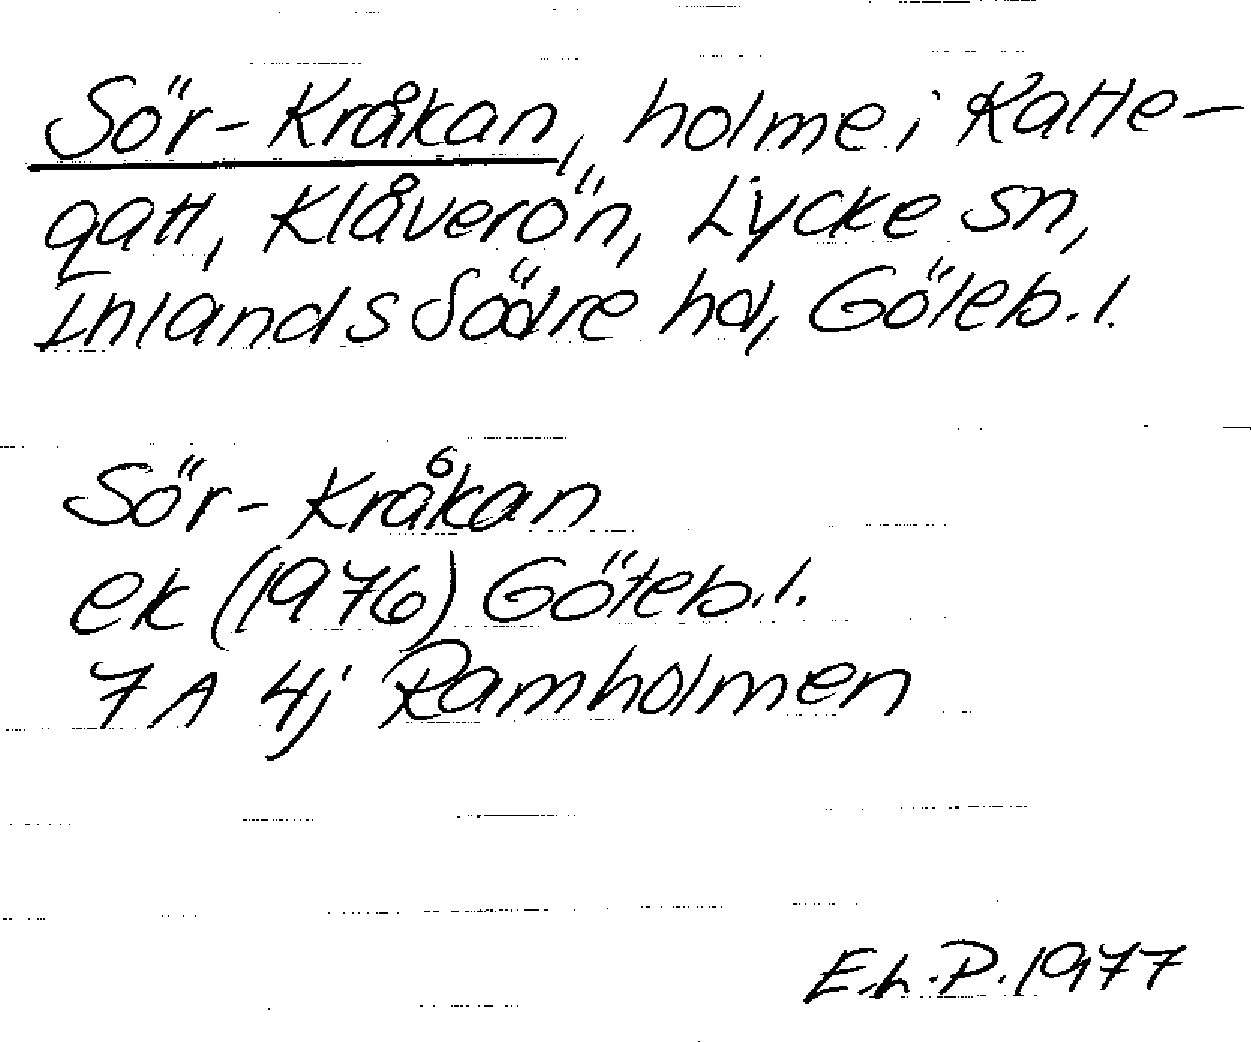 Sör-Kråkan, holme i Katte-
gatt, Klåverön, Lycke sn,
Inlands Södre hd, Göteb. l.
Sör-Kråkan
ek (1976) Göteb. l.
7A 4j Ramholmen
E.L.P. 1977